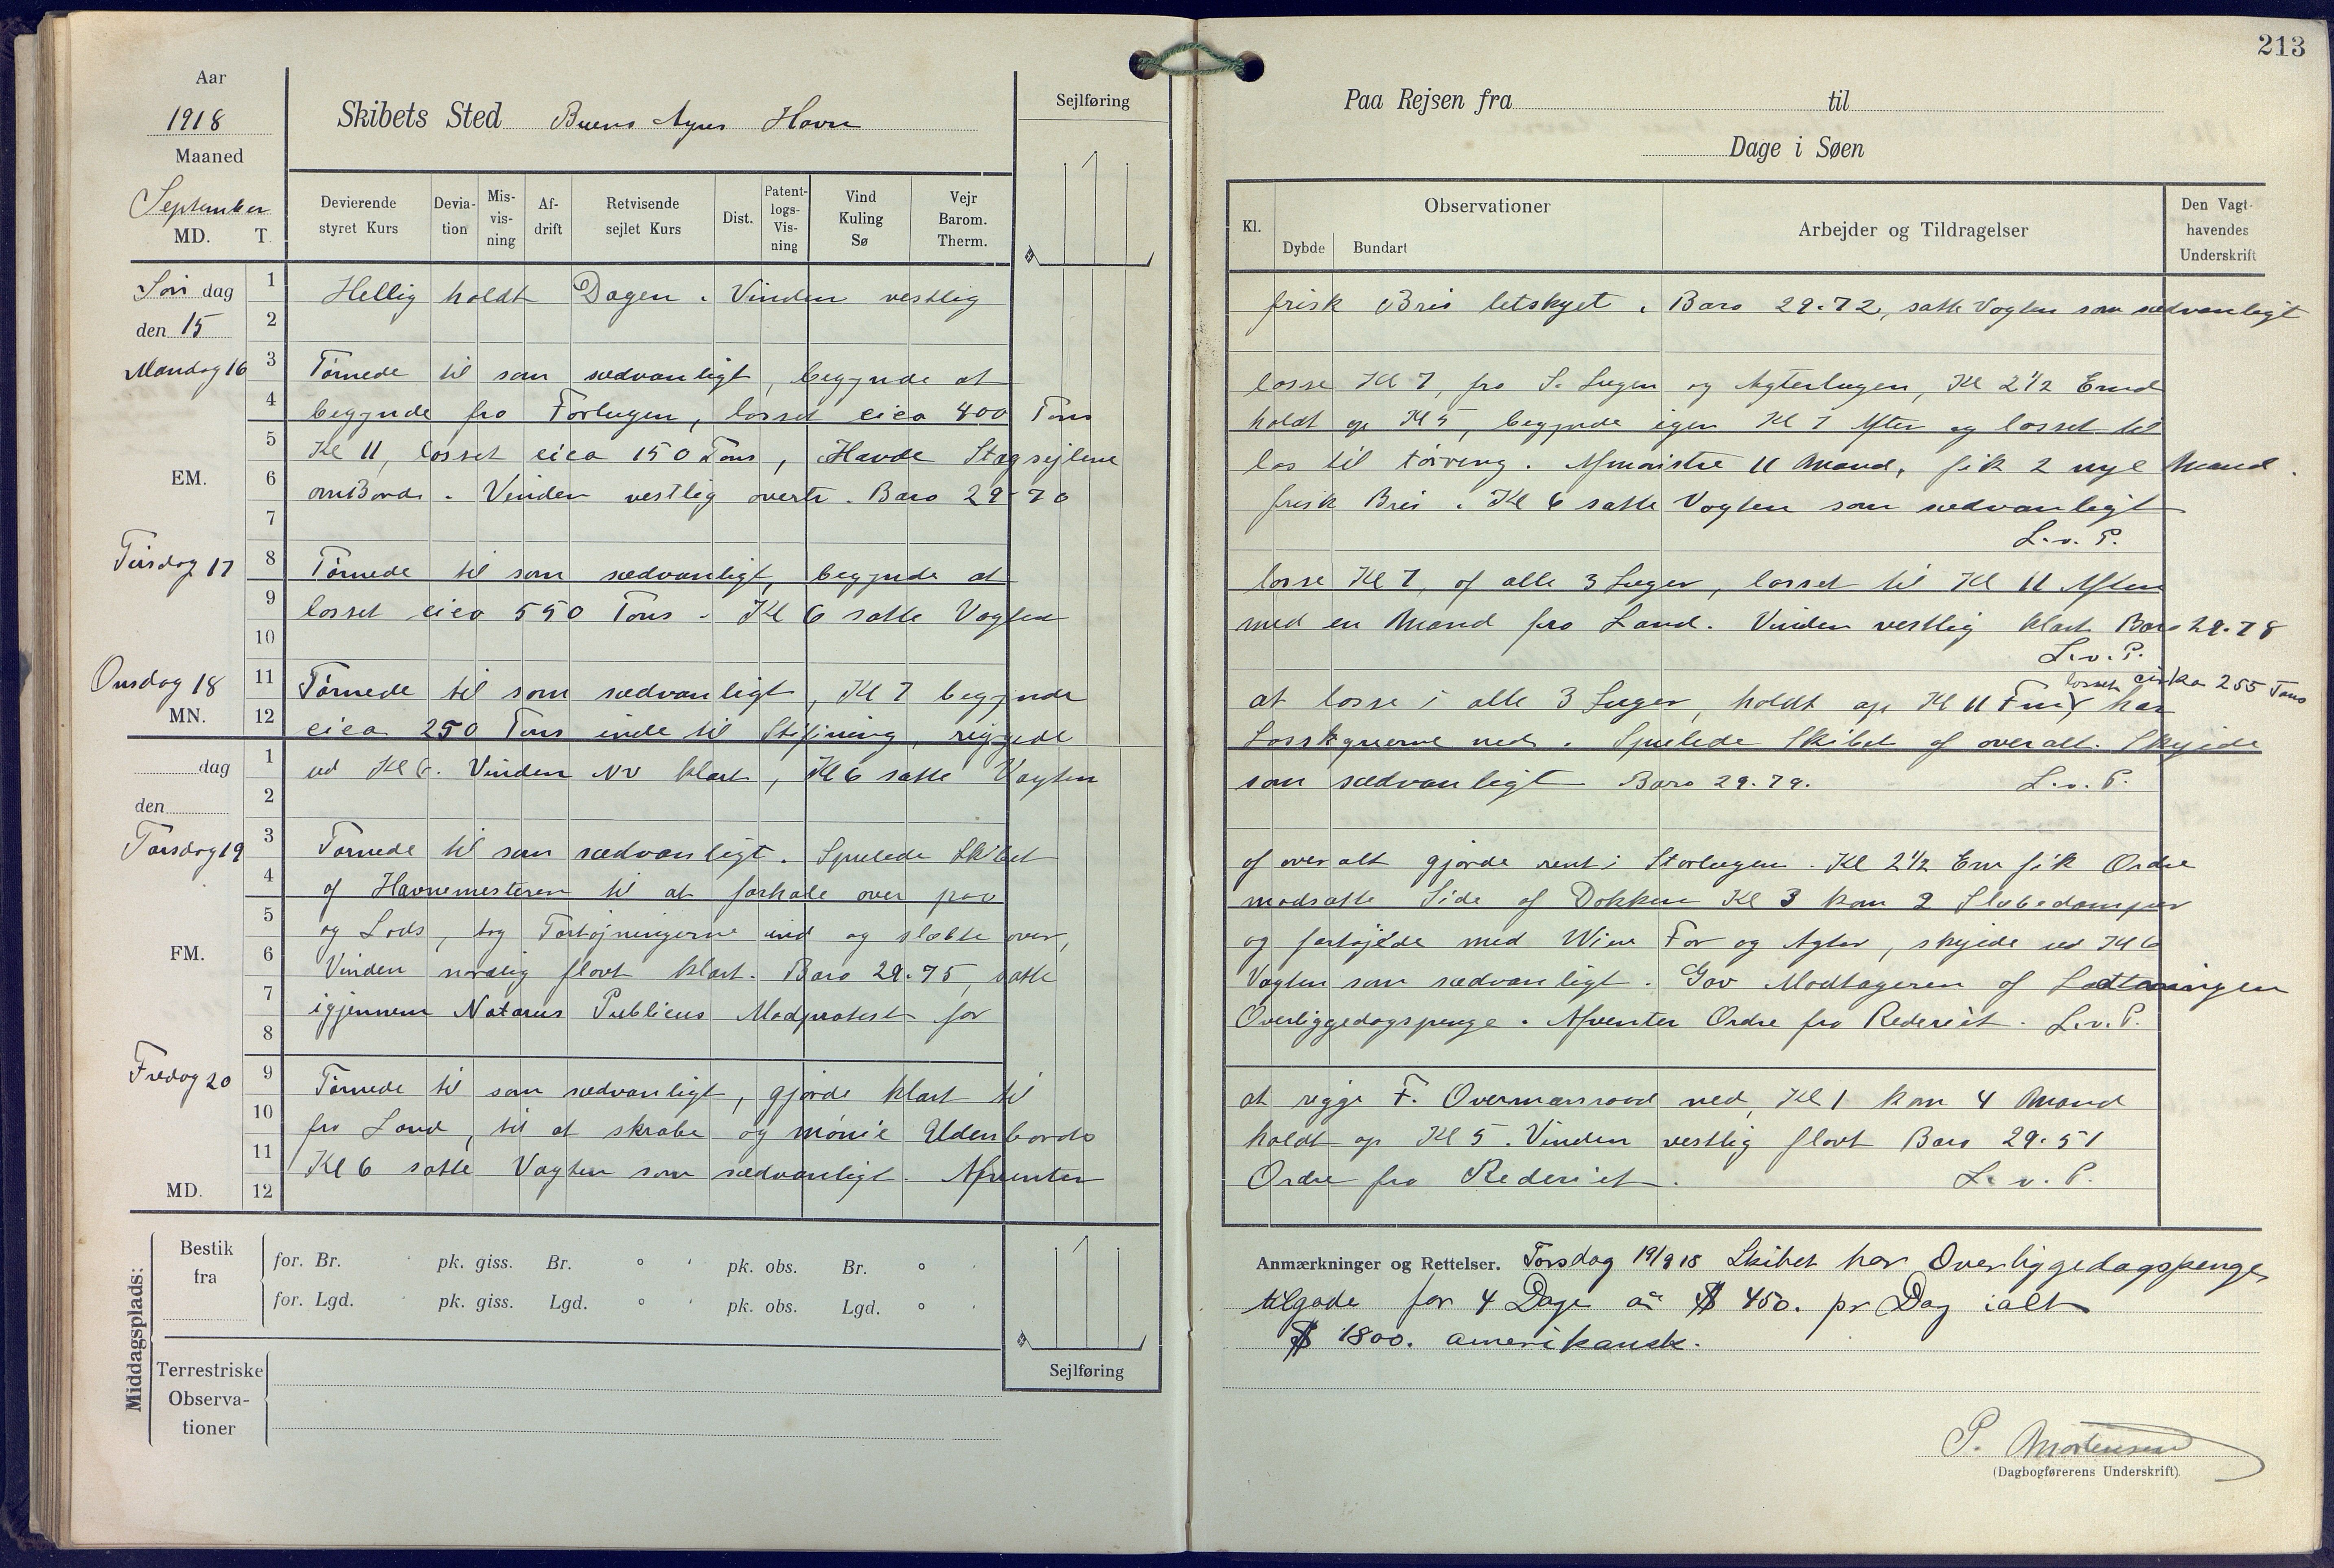 213
Aar
1918
Maaned
September
MD. T.
Skibets Sted Buens Ayres Havn
Sejlføring
Devierende styret Kurs
Devia-tion
Mis-vis-ning
Af-drift
Retvisende sejlet Kurs
Dist.
Patent-logs-Vis-ning
Vind Kuling Sø
Vejr Barom. Therm.
Søn dag
den 15
1
2
Hellig holdt Dagen. Vinden vestlig
Mandag 16
3
4
5
6
7
EM.
Tørnede til som sædvanligt, begynde at
begynde fra Forlugen, losset cica 400 Tons
Kl 11, losset cica 150 Tons, Havde Stagsejlene
omBords. Vinden vestlig overtr. Baro 29-70
Tirsdag 17
8
9
10
Tørnede til som sædvanligt, begynde at
losset cica 550 Tons - Kl 6 satte Vagten
Onsdag 18
11
MN. 12
Tørnede til som sædvanligt, Kl 7 begynde
cica 250 Tons inde til Stifining, riggede
dag
den
1
2
ud Kl 6. Vinden NV klart, Kl 6 satte Vagten
Torsdag 19
3
4
5
6
7
8
FM.
Tørnede til som sædvanligt. Spulede Skibet
af Havnemesteren til at forhale over paa
og Lods, tog Fortøjningerne ind og slæbte over,
Vinden nordlig flovt klart. Baro 29.75, satte
igjennem Notarus Publicus Modprotest for
Fredag 20
9
10
11
MD. 12
Tørnede til som sædvanligt, gjorde klart til
fra Land, til at skrabe og mönie Udenbords
Kl 6 satte Vagten som sædvanligt. Afventer
Middagsplads:
Bestik fra
for. Br. pk. giss. Br. ° ' pk. obs. Br. ° '
for. Lgd. pk. giss. Lgd. ° ' pk. obs. Lgd. ° '
Terrestriske Observa-tioner
Sejlføring
Paa Rejsen fra til
Dage i Søen
Kl.
Observationer
Dybde Bundart
Arbejder og Tildragelser
Den Vagt-havendes Underskrift
frisk Bris letskyet. Baro 29.72, satte Vagten som sædvanligt
losse Kl 7, fra S. Lugen og Agterlugen, Kl 2½ Emd
holdt op Kl 5, begynde igen Kl 7 Aften og losset til
los til tørring. Afmønstre 11 Mand, fik 2 nye Mand.
frisk Bris. Kl 6 satte Vagten som sædvanligt
L.v.P.
losse Kl 7, af alle 3 Luger, losset til Kl 11 Aften
med en Mand fra Land. Vinden vestlig klart Baro 29.78
L.v.P.
losset cirka 255 Tons
at losse i alle 3 Luger, holdt op Kl 11 Fm, har
Lossegrerne ned. Spulede Skibet af overalt. Skyede
som sædvanligt Baro 29.79. L.v.P.
af over alt gjorde rent i Storlugen. Kl 2½ Em fik Ordre
modsatte Side af Dokken Kl 3 kom 2 Slæbedamper
og fortøjede med Wire For og Agter, skyede ud Kl 6
Vagten som sædvanligt. Gav Modtageren af Ladtningen
Overliggedagspenge. Afventer Ordre fra Rederiet. L.v.P.
at rigge F. Overmærsraa ned, Kl 1 kom 4 Mand
holdt op Kl 5. Vinden vestlig flovt Baro 29.51
Ordre fra Rederiet. L.v.P.
Anmærkninger og Rettelser. Torsdag 19/9 18 Skibet har Overliggedagspenge
tilgode for 4 Dage aa $ 450. pr Dag ialt
$ 1800. amerikansk.
P. Mortensen
(Dagbogførerens Underskrift).